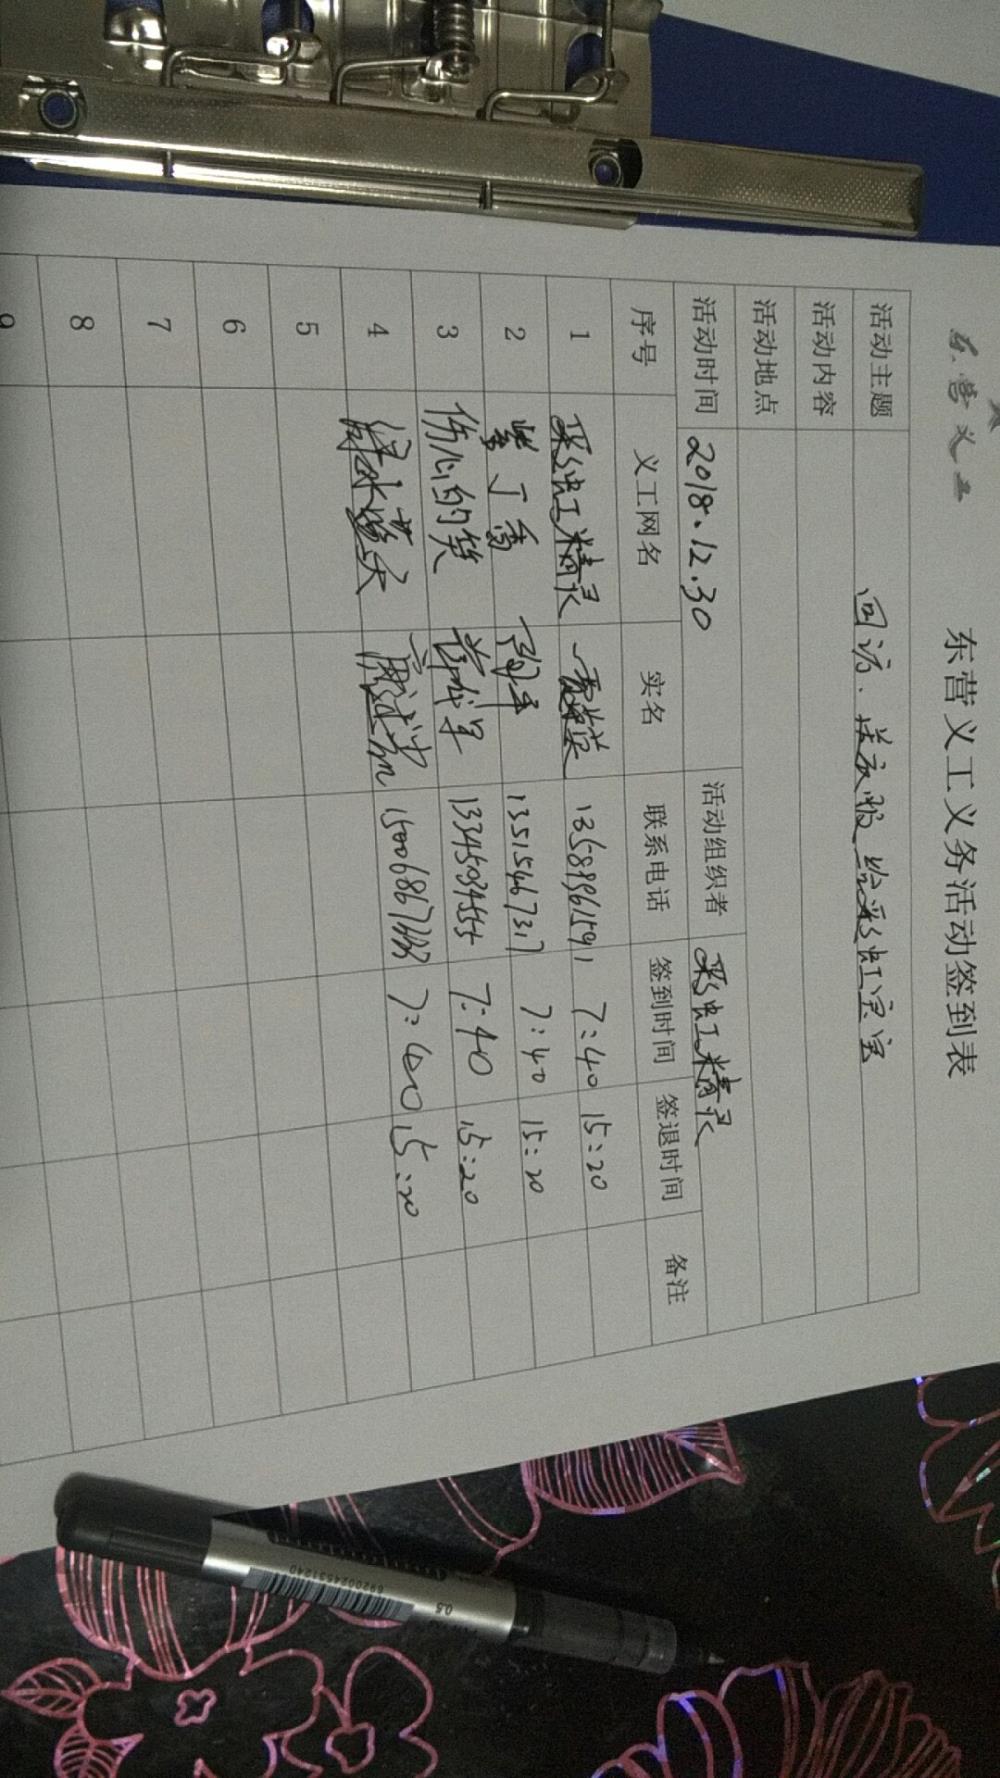 东营义工义务活动签到表
东营义工
活动主题 回访、送衣服给彩虹宝宝
活动内容
活动地点
活动时间 2018.12.30 活动组织者 彩虹精灵
序号 义工网名 实名 联系电话 签到时间 签退时间 备注
1 彩虹精灵 7:40 15:20
2 紫丁香 13515467317 7:40 15:20
3 伤心的笑 13345034555 7:40 15:20
4 绿水蓝天 7:40 15:20
5
6
7
8
9
6920024531240
0.5